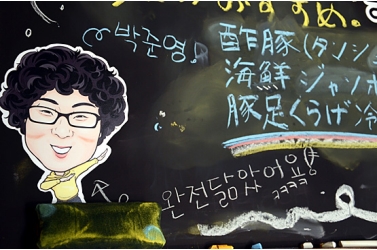 おすすめ
박준영
酢豚(タンシ
海鮮ジャンボ
豚足くらげ冷
완전닮았어요!
ㅋㅋㅋㅋ